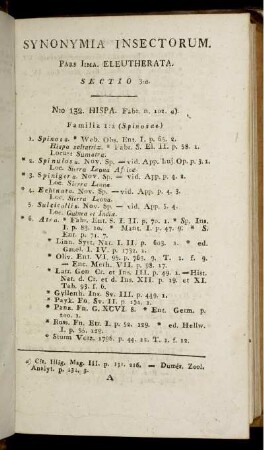 SYNONYMIA INSECTORUM.
Pars Ima. ELEUTHERATA.
SECTIO 3a.
Nro 132. HISPA. Fabr. n. 101. a)
Familia 1:a (Spinosae)
1. Spinosa. * Web. Obs. Ent. I. p. 65. 2.
Hispa echatrix. * Fabr. S. El. II. p. 58. 1.
Locus: Sumatra.
* 2. Spinulosa. Nov. Sp. — vid. App. huj. Op. p. 3. 1.
Loc. Sierra Leona Africae.
* 3. Spinigera. Nov. Sp. — vid. App. p. 4. 2.
Loc. Sierra Leona
* 4. Echinata. Nov. Sp. — vid. App. p. 4. 3.
Loc. Sierra Leona.
* 5. Sulcicollis. Nov. Sp. — vid. App. p. 5. 4.
Loc. Guinea et India.
* 6. Atra. * Fabr. Ent. S. I. II. p. 70. 1. * Sp. Ins.
I. p. 82. 10. * Mant. I. p. 47. 9. * S.
Ent. p. 71. 7.
* Linn. Syst. Nat. I. II. p. 603. 1. * ed.
Gmel. I. IV. p. 1732. 1.
* Oliv. Ent. VI. 95. p. 763. 9. T. 1. f. 9.
— Enc. Meth. VII. p. 98. 17.
* Latr. Gen. Cr. et Ins. III. p. 49. 1. — Hist.
Nat. d. Cr. et d. Ins. XII. p. 19. et XI.
Tab. 93. f. 6.
* Gyllenh. Ins. Sv. III. p. 449. 1.
* Payk. Fn. Sv. II. p. 131. 1.
* Panz. Fn. G. XCVI. 8. * Ent. Germ. p.
200. 1.
* Ross. Fn. Etr. I. p. 52. 129. * ed. Hellw.
I. p. 55. 129.
* Sturm Verz. 1796. p. 44. 11. T. 1. f. 12.
a) Cfr. Illig. Mag. III. p. 131. 116. — Dumér. Zool.
Analyt. p. 231. 3.
A